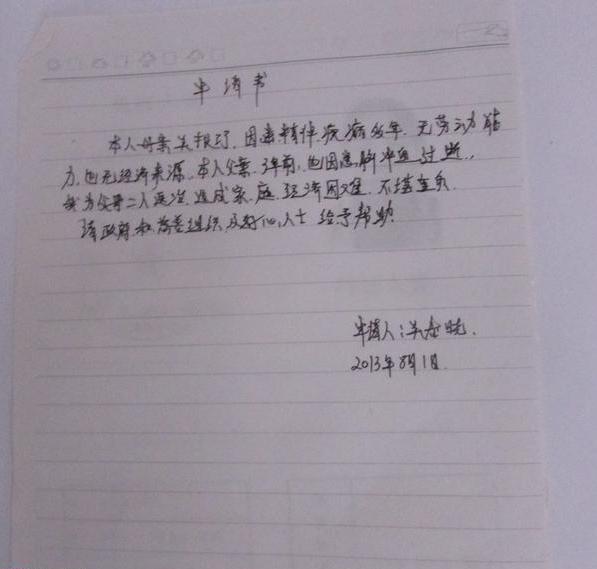 申请书
本人母亲关根巧,因患精神疾病多年,无劳动能
力,也无经济来源,本人父亲,3年前,也因患脑冲血过逝,
我为父母二人医治,造成家庭经济困难,不堪重负,
请政府和慈善组织及好心人士给予帮助
申请人:关
2013年8月1日